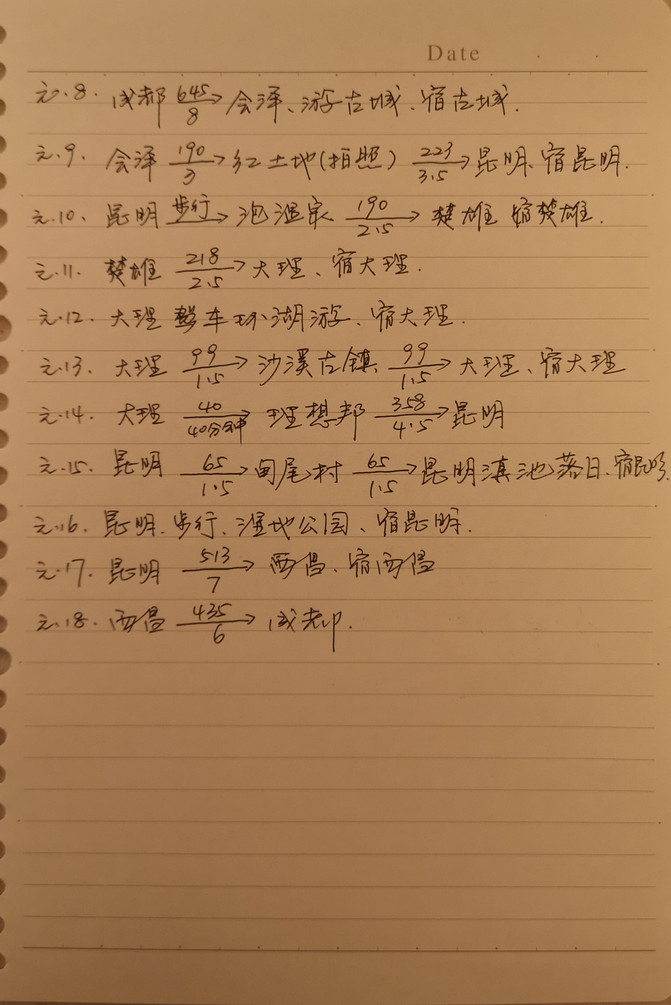 Date
元.8. 成都 645/8 → 会泽、游古城、宿古城.
元.9. 会泽 190/3 → 红土地(拍照) 223/3.5 → 昆明、宿昆明.
元.10、昆明 步行 → 泡温泉 190/2.5 → 楚雄 宿楚雄.
元.11. 楚雄 218/2.5 → 大理、宿大理.
元.12. 大理 驾车环湖游、宿大理.
元.13. 大理 99/1.5 → 沙溪古镇、99/1.5 → 大理、宿大理
元.14. 大理 40/40分钟 → 理想邦 358/4.5 → 昆明
元.15. 昆明 65/1.5 → 甸尾村 65/1.5 → 昆明滇池落日、宿昆明
元.16. 昆明、步行、湿地公园、宿昆明.
元.17. 昆明 513/7 → 西昌、宿西昌
元.18. 西昌 435/6 → 成都.